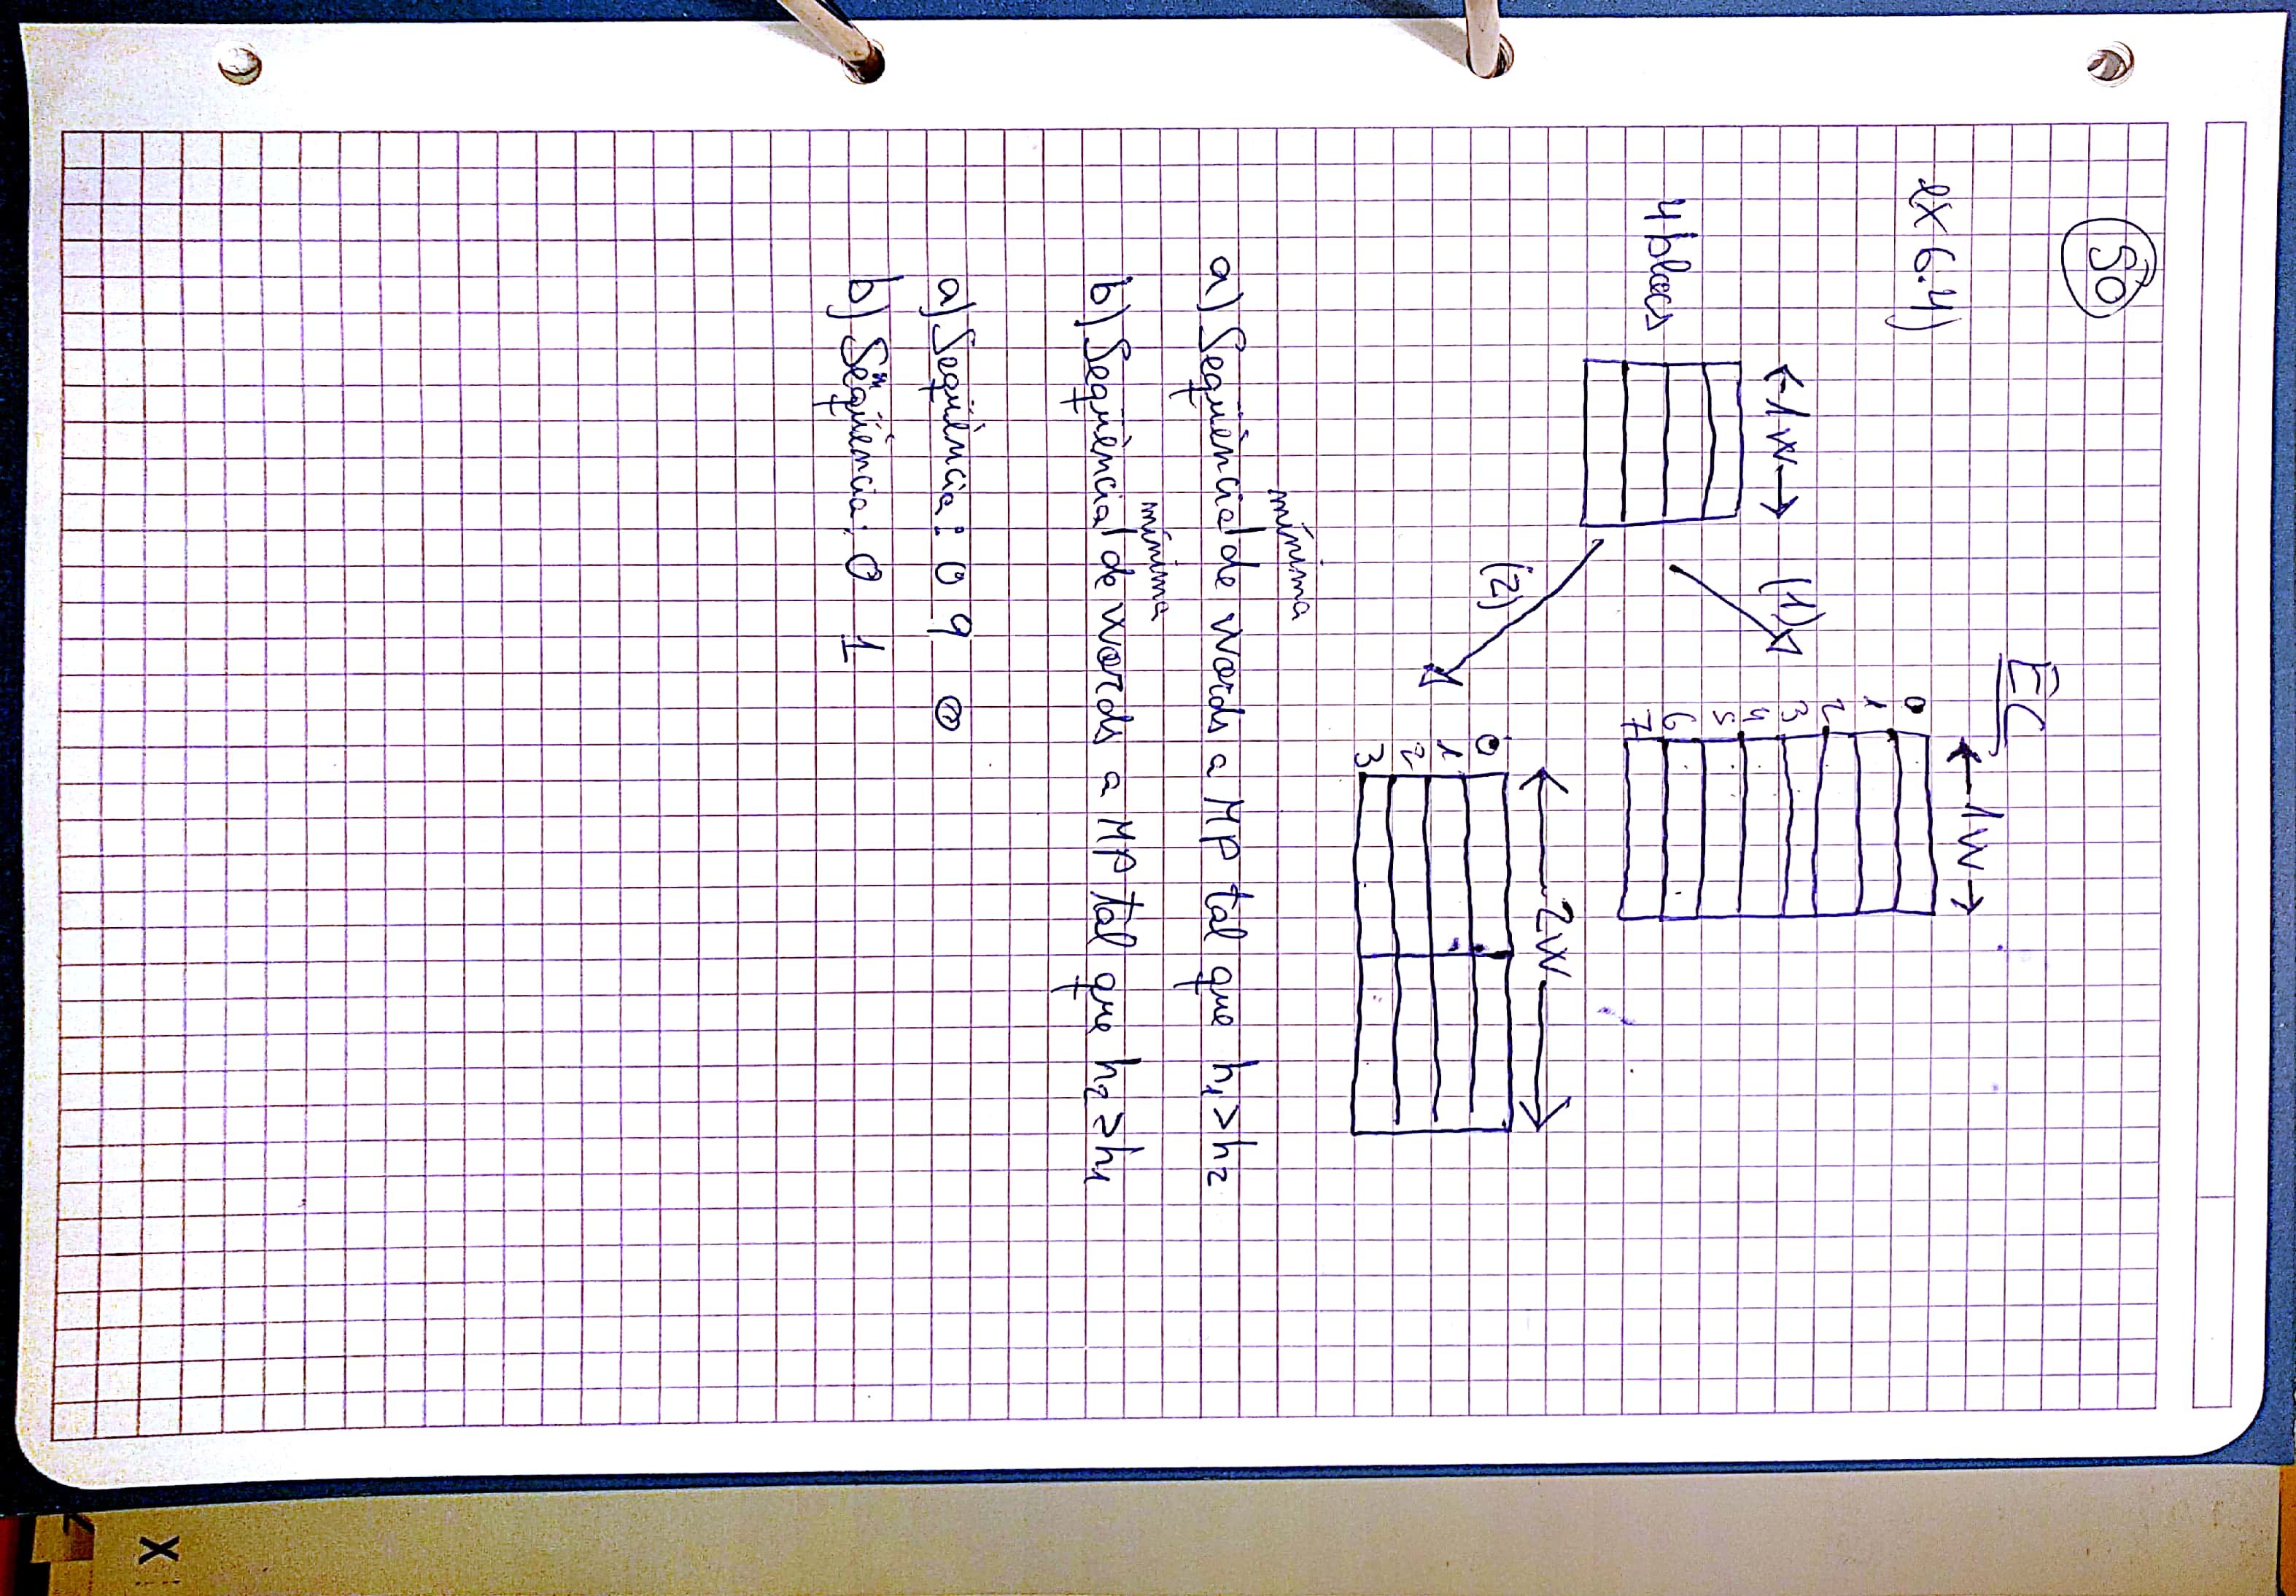 50
EC
ex 6.4)
1W
0
1
2
3
4
5
6
7
1W
(1)
4 blocs
(2)
2W
0
1
2
3
mínima
a) Seqüència de words a MP tal que h₁ > h₂
mínima
b) Seqüència de words a MP tal que h₂ > h₁
a) Seqüència: 0 9 0
b) Seqüència: 0 1
X